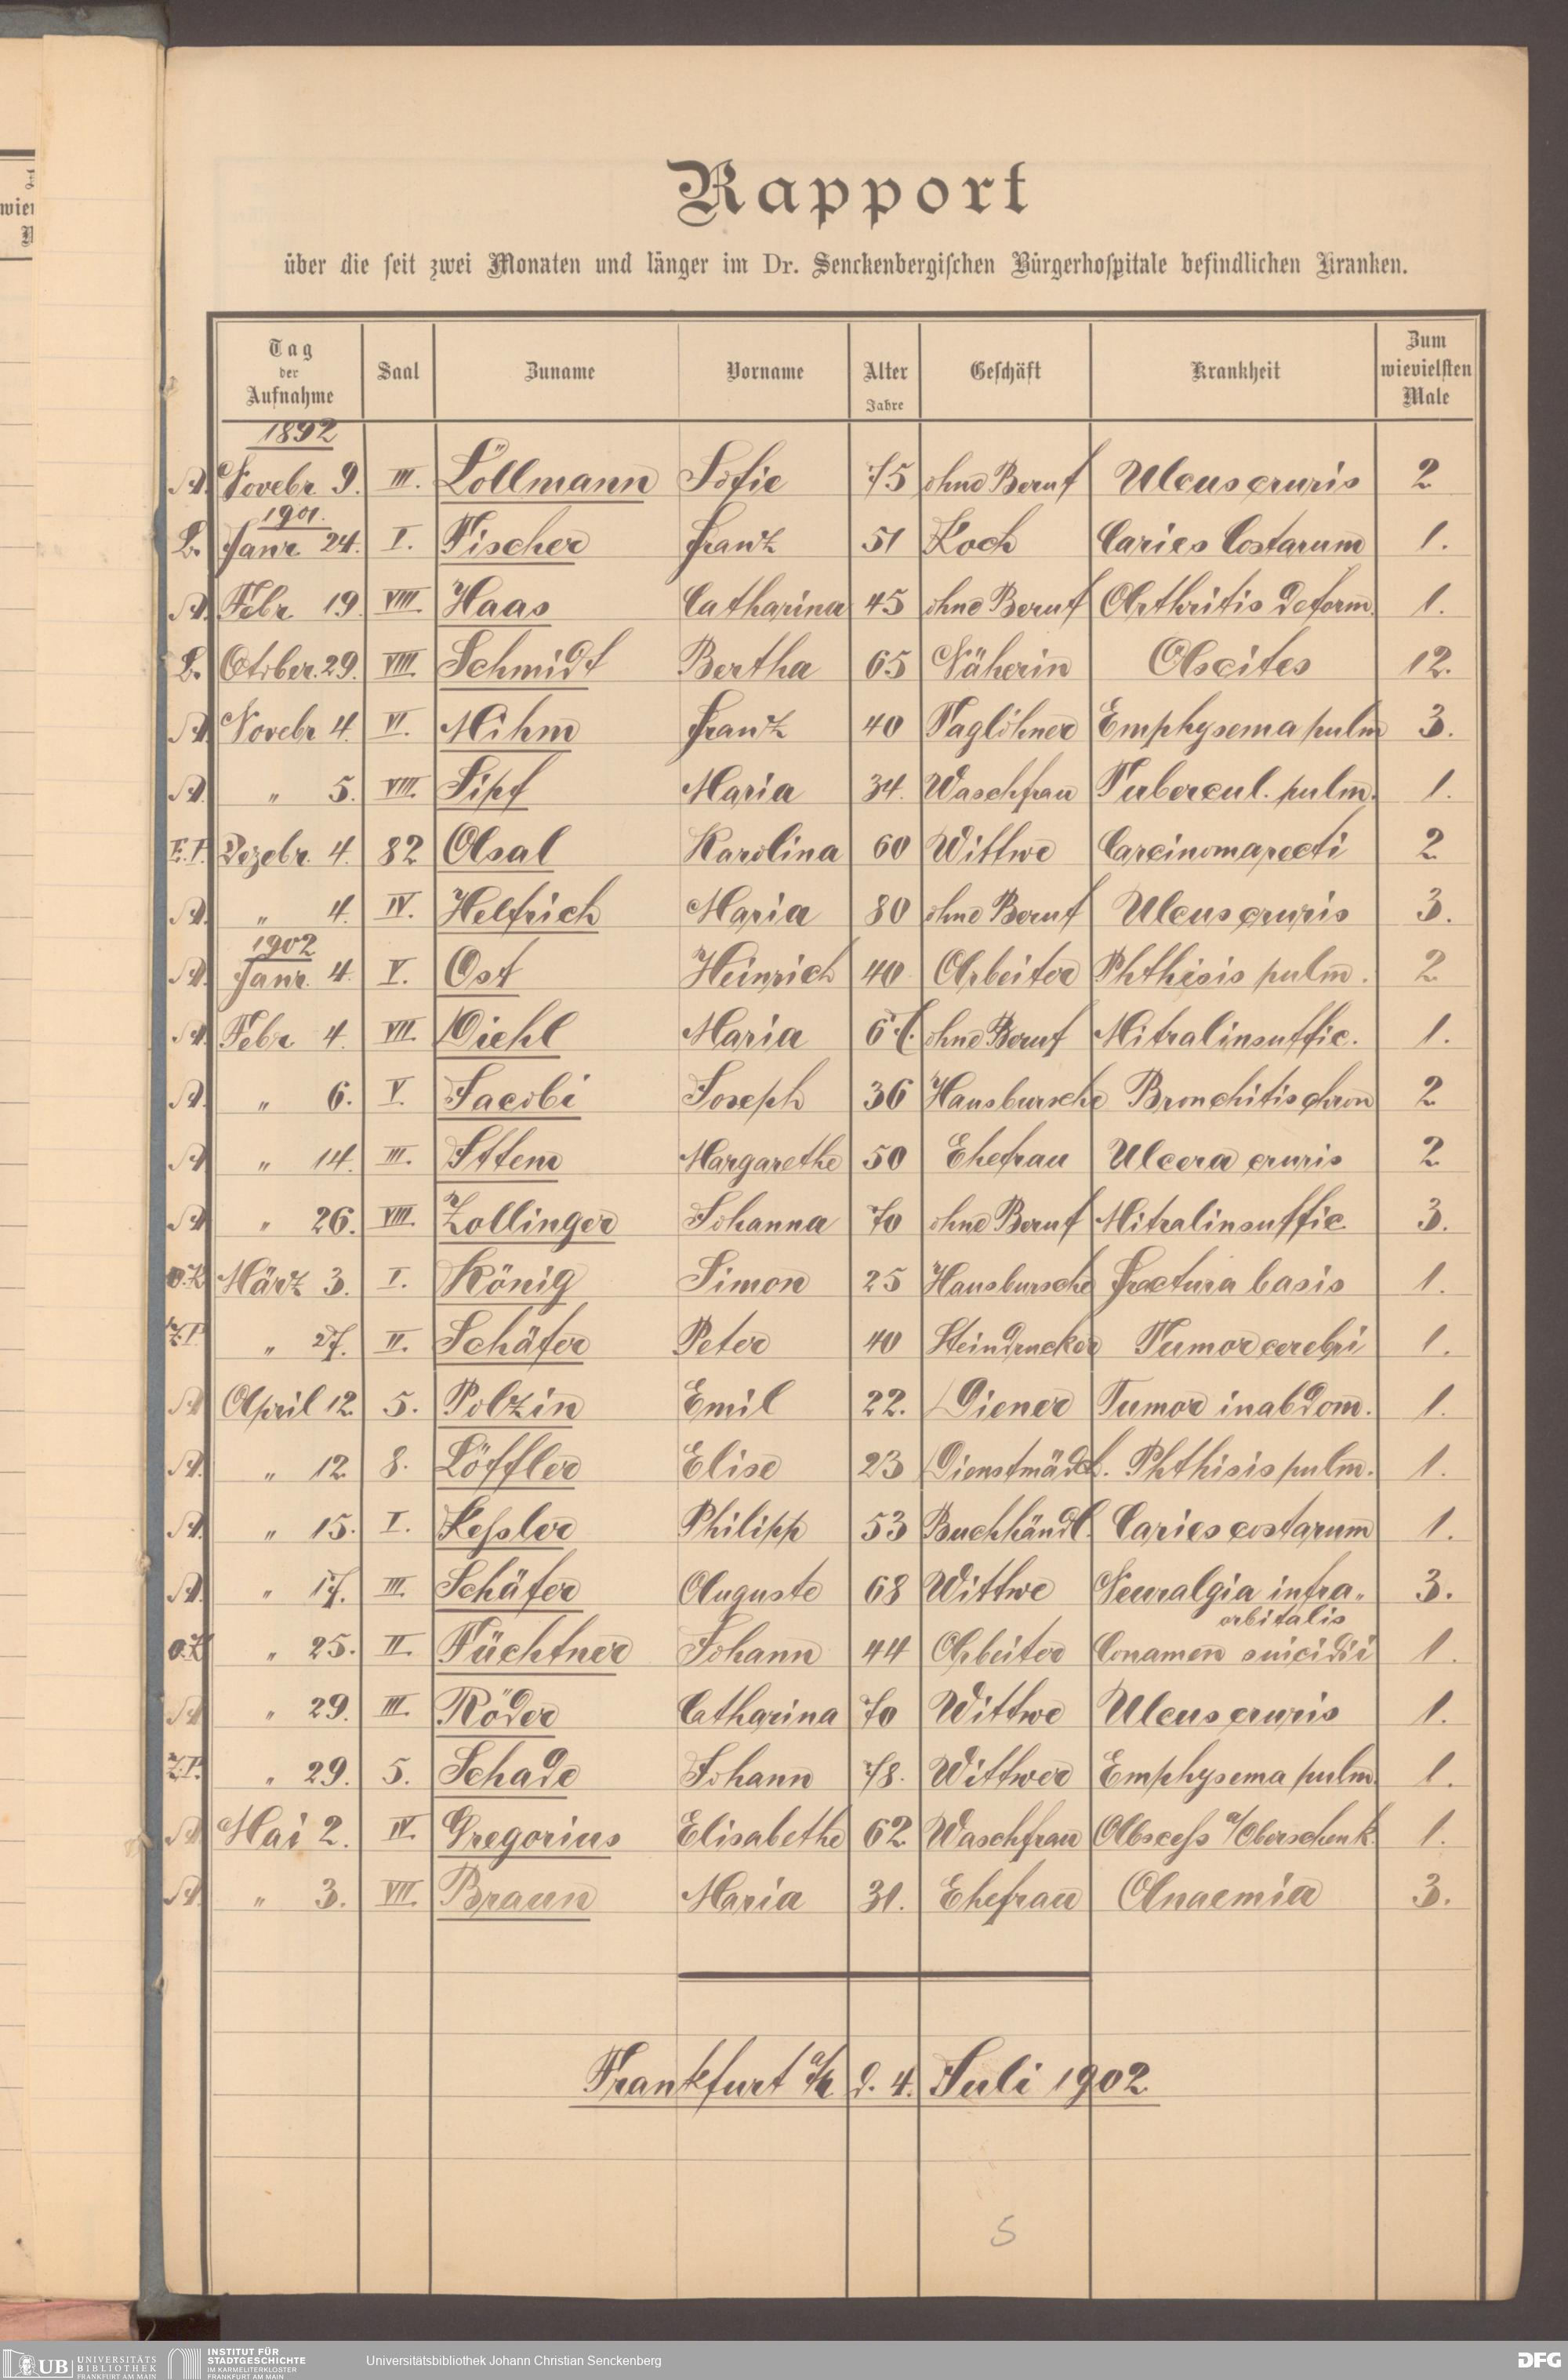 Rapport
über die seit zwei Monaten und länger im Dr. Senckenbergischen Bürgerhospitale befindlichen Kranken.
Tag der Aufnahme Saal Zuname Vorname Alter Jahre Geschäft Krankheit Zum wievielsten Male
1892
A. Novebr. 9. III. Löllmann Sofie 75 ohne Beruf Ulcus cruris 2
1901.
L. Janr. 24. I. Fischer Franz 51 Koch Caries Costarum 1.
A. Febr. 19. VIII. Haas Catharina 45 ohne Beruf Arthritis deform. 1.
L. Otober. 29. VIII. Schmidt Bertha 65 Näherin Ascites 12.
A. Novebr 4. VI. Mihm Franz 40 Taglöhner Emphysema pulm 3.
A. " 5. VIII. Sipf Maria 34. Waschfrau Tubercul. pulm. 1.
E.P. Dezebr. 4. 82 Asal Karolina 60 Wittwe Carcinoma recti 2
A. " 4. IV. Helfrich Maria 80 ohne Beruf Ulcus cruris 3.
1902
A. Janr. 4. V. Ost Heinrich 40 Arbeiter Phthisis pulm. 2
A. Febr. 4. VII. Diehl Maria 67. ohne Beruf Mitralinsuffic. 1.
A. " 6. V. Jacobi Joseph 36 Hausbursche Bronchitis chron 2
A " 14. III. Ittem Margarethe 50 Ehefrau Ulcera cruris 2
A " 26. VIII. Zollinger Johanna 70 ohne Beruf Mitralinsuffic 3.
O.K. März 3. I. König Simon 25 Hausbursche Fractura basis 1.
Z.P. " 27. II. Schäfer Peter 40 Steindrucker Tumor cerebri 1.
A April 12. 5. Polzin Emil 22. Diener Tumor in abdom. 1.
A. " 12. 8. Löffler Elise 23 Dienstmädch. Phthisis pulm. 1.
A. " 15. I. Keßler Philipp 53 Buchhändl. Caries costarum 1.
A. " 17. III. Schäfer Auguste 68 Wittwe Neuralgia infra- 3.
orbitalis
O.K. " 25. II. Füchtner Johann 44 Arbeiter Conamen suicidii 1.
A " 29. III. Röder Catharina 70 Wittwe Ulcus cruris 1.
Z.P. " 29. 5. Schade Johann 78. Wittwer Emphysema pulm. 1.
A Mai 2. IV. Gregorius Elisabethe 62 Waschfrau Absceß a/Oberschenk. 1.
A. " 3. VII. Braun Maria 31. Ehefrau Anaemia 3.
Frankfurt a/M d. 4. Juli 1902.
5
UB UNIVERSITÄTS BIBLIOTHEK FRANKFURT AM MAIN
INSTITUT FÜR STADTGESCHICHTE IM KARMELITERKLOSTER FRANKFURT AM MAIN
Universitätsbibliothek Johann Christian Senckenberg
DFG